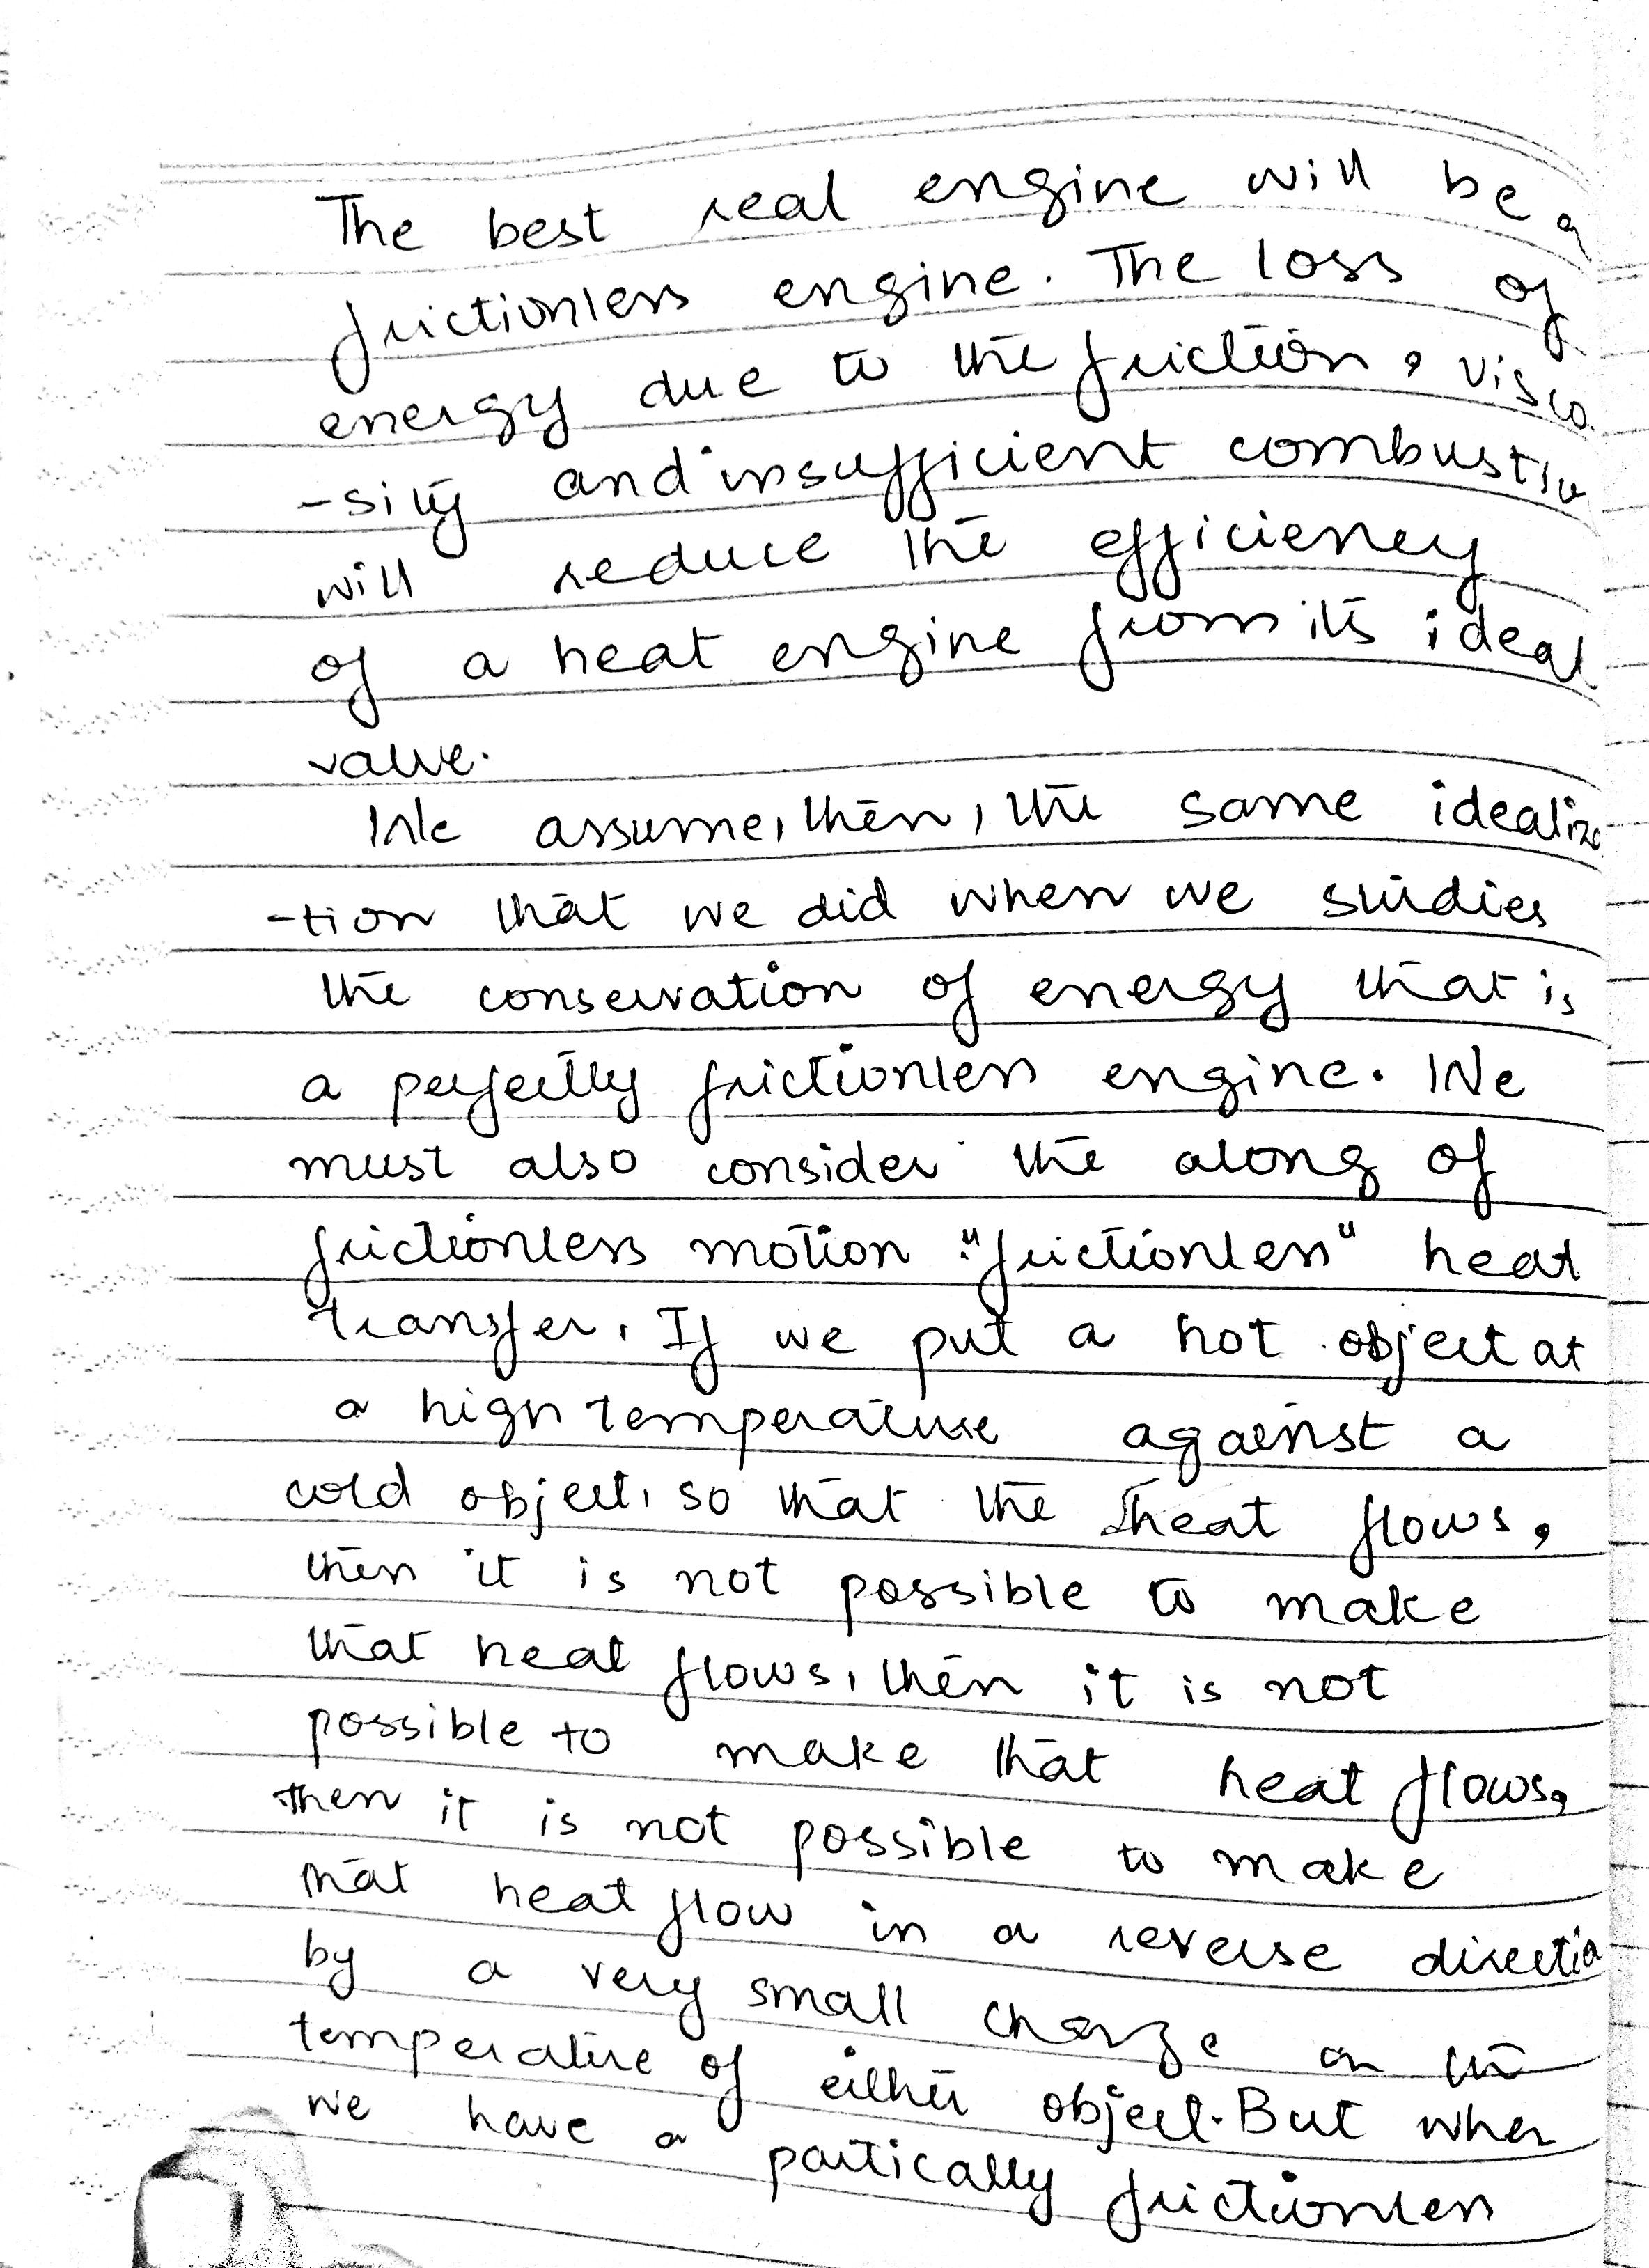 The best real engine will be a
frictionless engine. The loss of
energy due to the friction, visco
-sity and insufficient combustio
will reduce the efficiency
of a heat engine from its ideal
value.
We assume, then, the same idealiza
-tion that we did when we studies
the conservation of energy that is
a perfectly frictionless engine. We
must also consider the along of
frictionless motion "frictionless" heat
transfer. If we put a hot object at
a high temperature against a
cold object, so that the heat flows,
then it is not possible to make
that heat flows, then it is not
possible to make that heat flows,
then it is not possible to make
that heat flow in a reverse directio
by a very small change on the
temperature of either object. But when
we have a partically frictionless